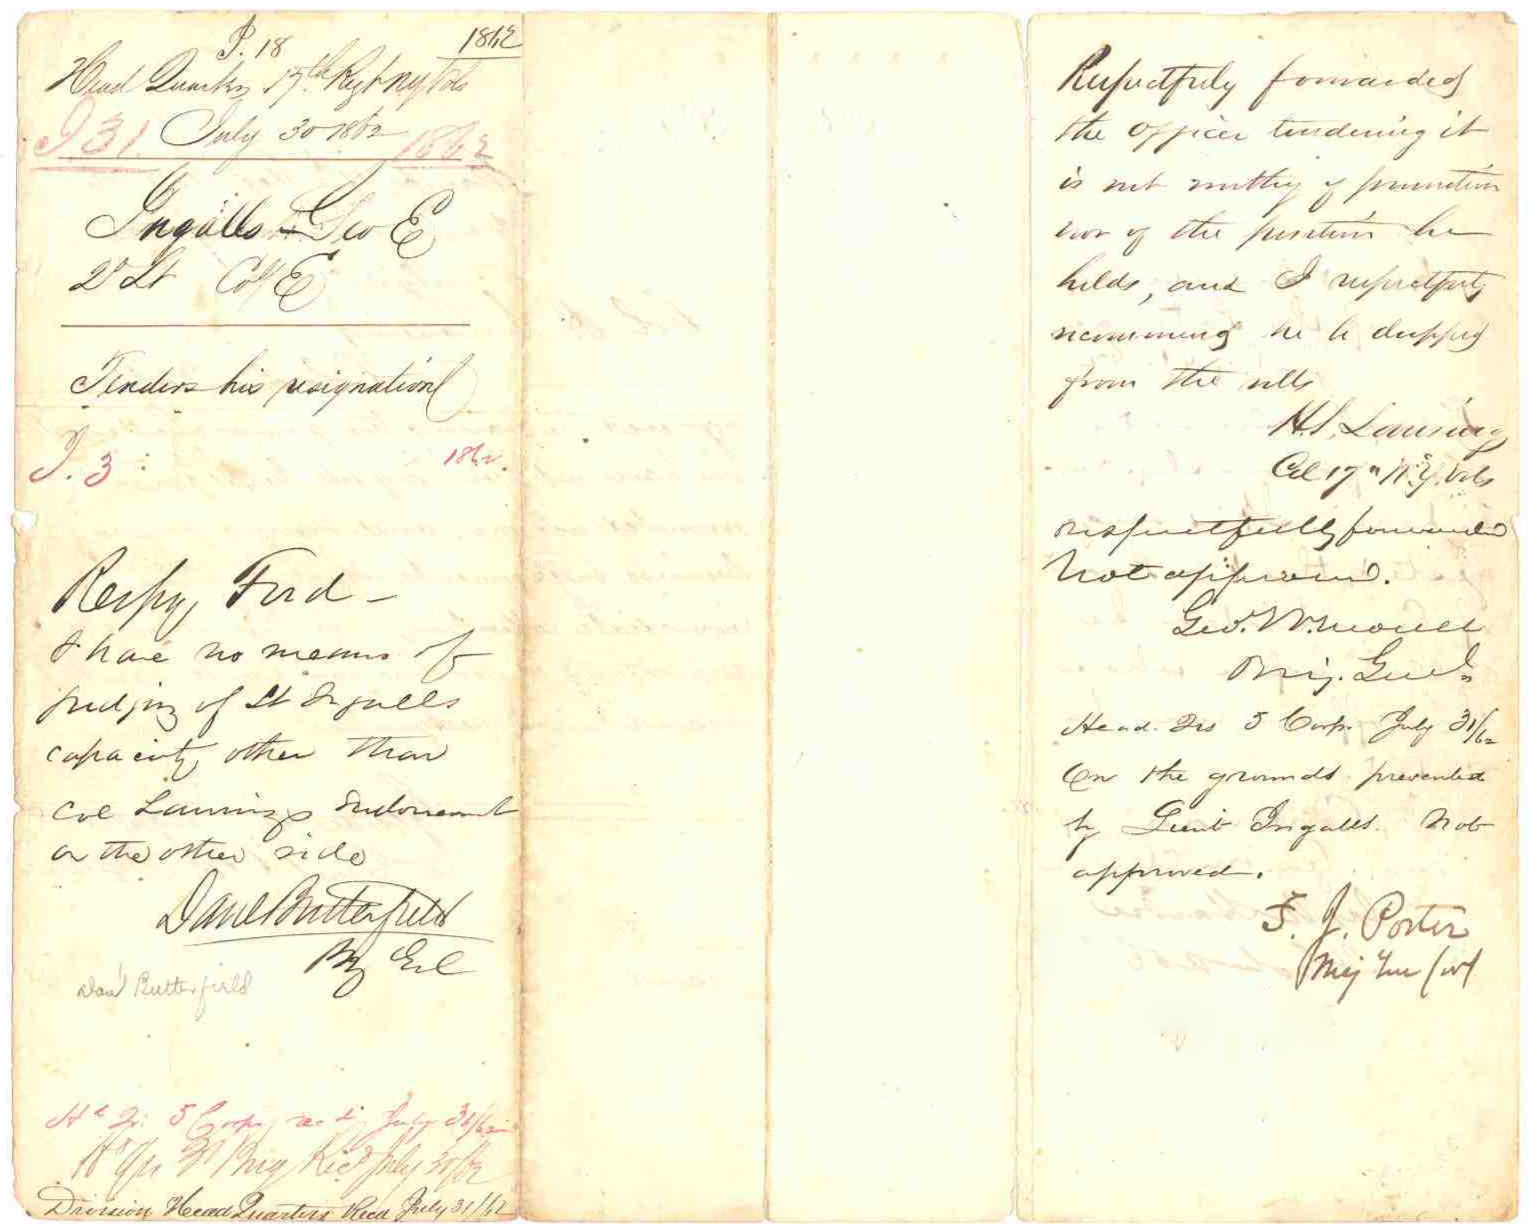 P. 18 1862
Head Quarters 17th Regt NY Vols
I 31 July 30 1862 1862
Ingalls Geo E
2d Lt Co E
Tenders his resignation
I. 3 1862.
Respy Ford -
I have no means of
judging of Lt Ingalls
capacity other than
Col Lansings Endorsement
on the other side
Danl Butterfield
Bg Genl
Danl Butterfield
Hd Qr: 5 Corps recd July 31/62
Hd Qrs 3d Brig Recd July 30/62
Division Head Quarters Recd July 31/62
Respectfully forwarded
the officer tendering it
is not worthy of promotion
nor of the position he
holds, and I respectfully
recommend he be dropped
from the rolls
H.S. Lansing
Col 17th N.Y. Vols
respectfully forwarded
Not approved.
Geo. W. Morell
Brig. Genl.
Head. Qrs 5 Corps. July 31/62
On the grounds presented
by Lieut Ingalls. Not
approved.
F. J. Porter
Maj Gen